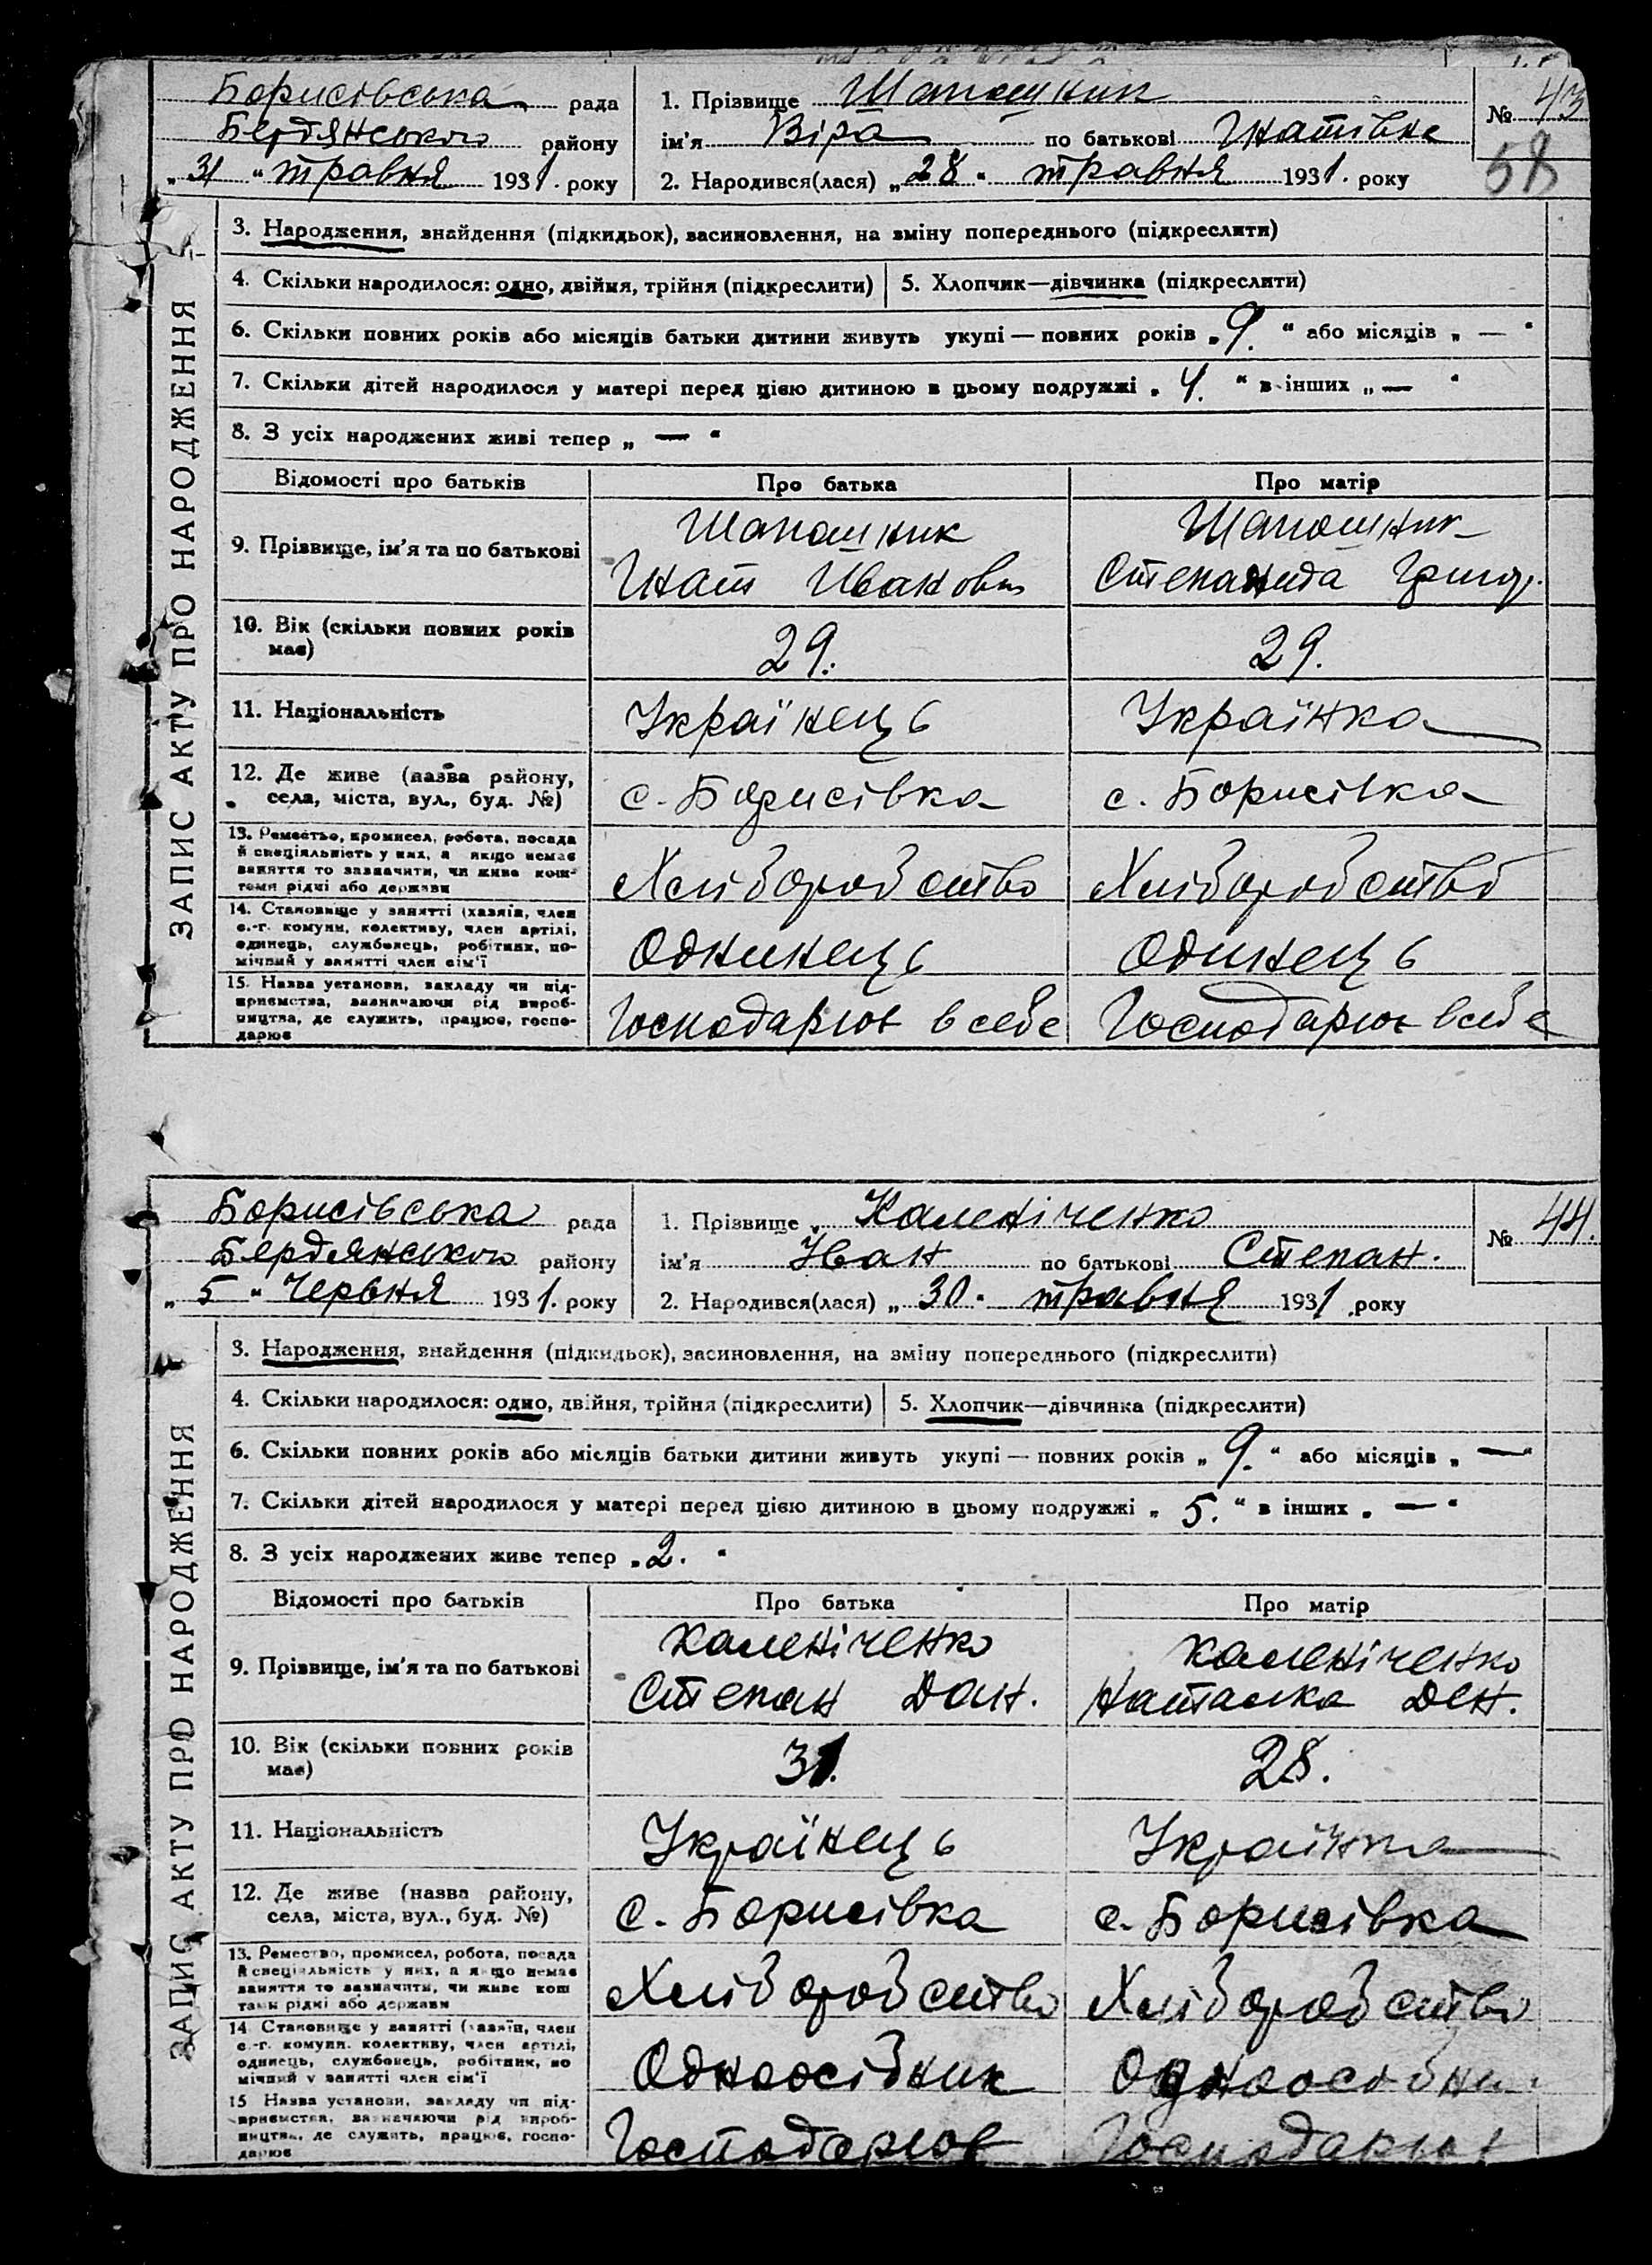 Борисівська рада
Бердянського району
„31" травня 1931. року
1. Прізвище Шапошник
ім'я Віра по батькові Гнатівна
2. Народився(лася) „28" травня 1931. року
№ 43
58
ЗАПИС АКТУ ПРО НАРОДЖЕННЯ
3. Народження, знайдення (підкидьок), засиновлення, на зміну попереднього (підкреслити)
4. Скільки народилося: одно, двійня, трійня (підкреслити)
5. Хлопчик—дівчинка (підкреслити)
6. Скільки повних років або місяців батьки дитини живуть укупі — повних років „9." або місяців „—"
7. Скільки дітей народилося у матері перед цією дитиною в цьому подружжі „4." в інших „—"
8. З усіх народжених живі тепер „—"
Відомості про батьків Про батька Про матір
9. Прізвище, ім'я та по батькові
Шапошник
Гнат Іванович
Шапошник
Степанида Григор.
10. Вік (скільки повних років має)
29. 29.
11. Національність
Українець Українка
12. Де живе (назва району,
села, міста, вул., буд. №)
с. Борисівка с. Борисівка
13. Ремество, промисел, робота, посада
й спеціяльність у них, а якщо немає
заняття то зазначити, чи живе кош-
тами рідні або держави
Хліборобство Хліборобство
14. Становище у занятті (хазяїн, член
с.-г. комуни, колективу, член артілі,
одинець, службовець, робітник, по-
мічний у занятті член сім'ї
Однинець Одинець
15. Назва установи, закладу чи під-
приємства, зазначаючи рід вироб-
ництва, де служить, працює, госпо-
дарює
Господарює в себе Господарює в себе
Борисівська рада
Бердянського району
„5" Червня 1931. року
1. Прізвище Каленіченко
ім'я Іван по батькові Степан.
2. Народився(лася) „30" травня 1931 року
№ 44.
ЗАПИС АКТУ ПРО НАРОДЖЕННЯ
3. Народження, знайдення (підкидьок), засиновлення, на зміну попереднього (підкреслити)
4. Скільки народилося: одно, двійня, трійня (підкреслити)
5. Хлопчик—дівчинка (підкреслити)
6. Скільки повних років або місяців батьки дитини живуть укупі — повних років „9." або місяців „—"
7. Скільки дітей народилося у матері перед цією дитиною в цьому подружжі „5." в інших „—"
8. З усіх народжених живе тепер „2."
Відомості про батьків Про батька Про матір
9. Прізвище, ім'я та по батькові
Каленіченко
Степан Дан.
Каленіченко
Наталка Дем.
10. Вік (скільки повних років має)
31. 28.
11. Національність
Українець Українка
12. Де живе (назва району,
села, міста, вул., буд. №)
с. Борисівка с. Борисівка
13. Ремество, промисел, робота, посада
й спеціяльність у них, а якщо немає
заняття то зазначити, чи живе кош
тами рідні або держави
Хліборобство Хліборобство
14. Становище у занятті (хазяїн, член
с.-г. комуни, колективу, член артілі,
одинець, службовець, робітник, по
мічний у занятті член сім'ї
Одноосібник Одноосібни.
15. Назва установи, закладу чи під-
приємства, зазначаючи рід вироб-
ництва, де служить, працює, госпо-
дарює
Господарює Господарює